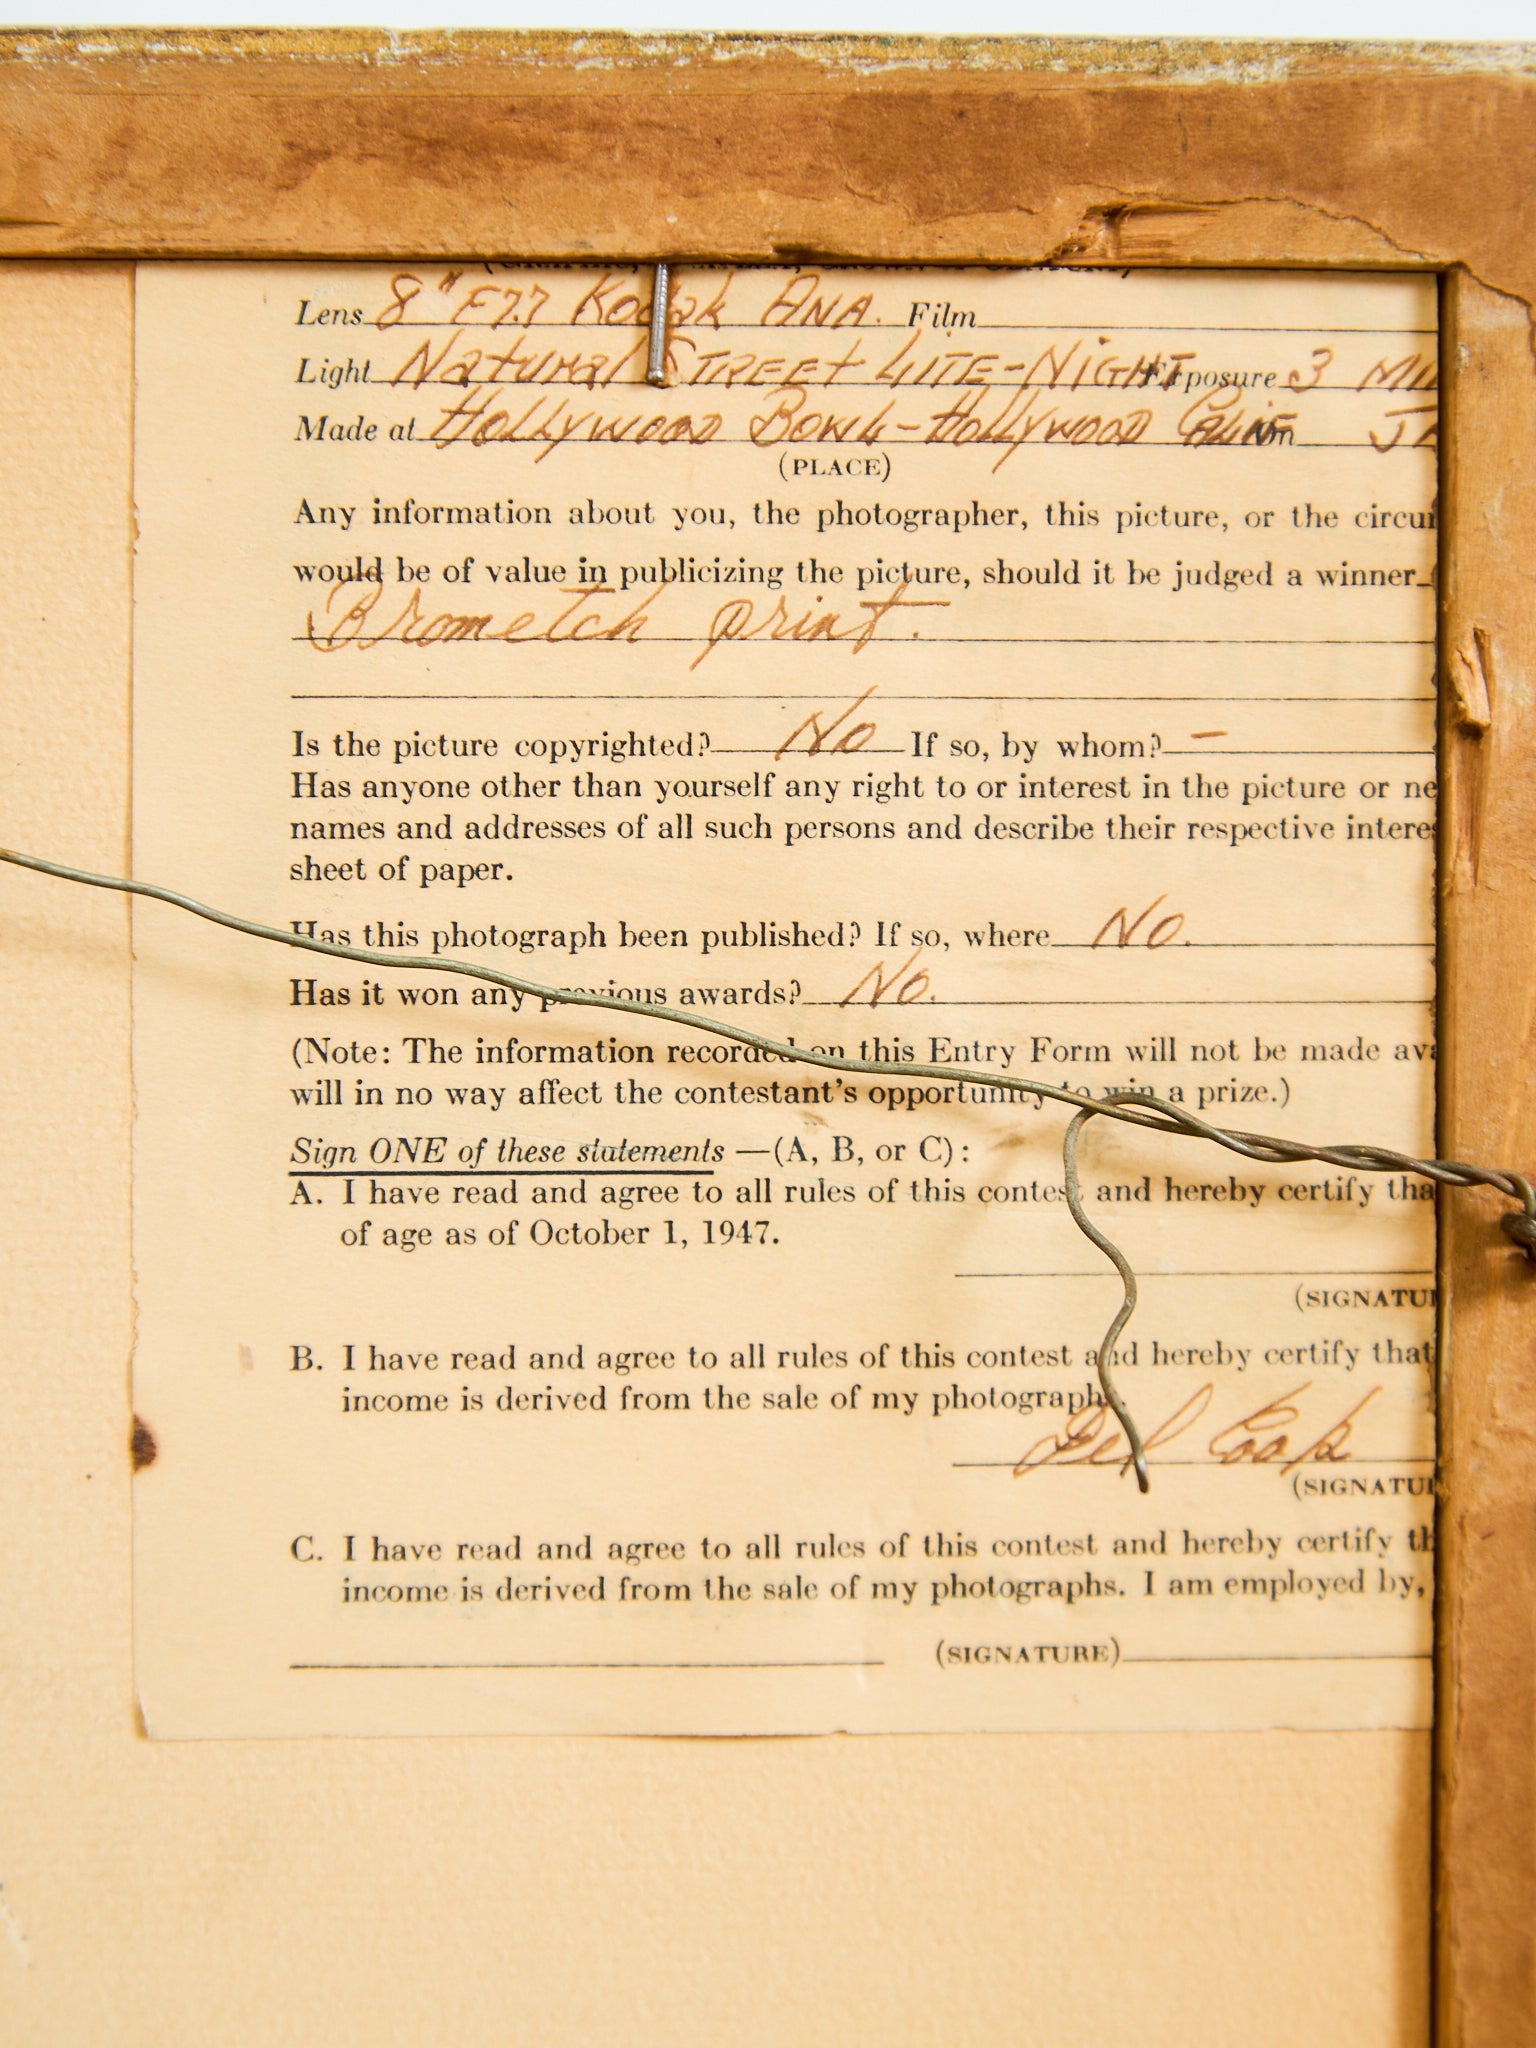 Lens 8" F7.7 Kodak ANA. Film
Light Natural STREET LITE-NIGHT Exposure 3
Made at Hollywood Bowl-Hollywood Calif on
(PLACE)
Any information about you, the photographer, this picture, or the
would be of value in publicizing the picture, should it be judged a winner
Brometch print.
Is the picture copyrighted? No If so, by whom? –
Has anyone other than yourself any right to or interest in the picture or
names and addresses of all such persons and describe their respective
sheet of paper.
Has this photograph been published? If so, where No.
Has it won any previous awards? No.
(Note: The information recorded on this Entry Form will not be made
will in no way affect the contestant's opportunity to win a prize.)
Sign ONE of these statements —(A, B, or C):
A. I have read and agree to all rules of this contest and hereby certify
of age as of October 1, 1947.
(SIGNATU
B. I have read and agree to all rules of this contest and hereby certify that
income is derived from the sale of my photographs.
Del Cook
(SIGNATU
C. I have read and agree to all rules of this contest and hereby certify
income is derived from the sale of my photographs. I am employed by,
(SIGNATURE)